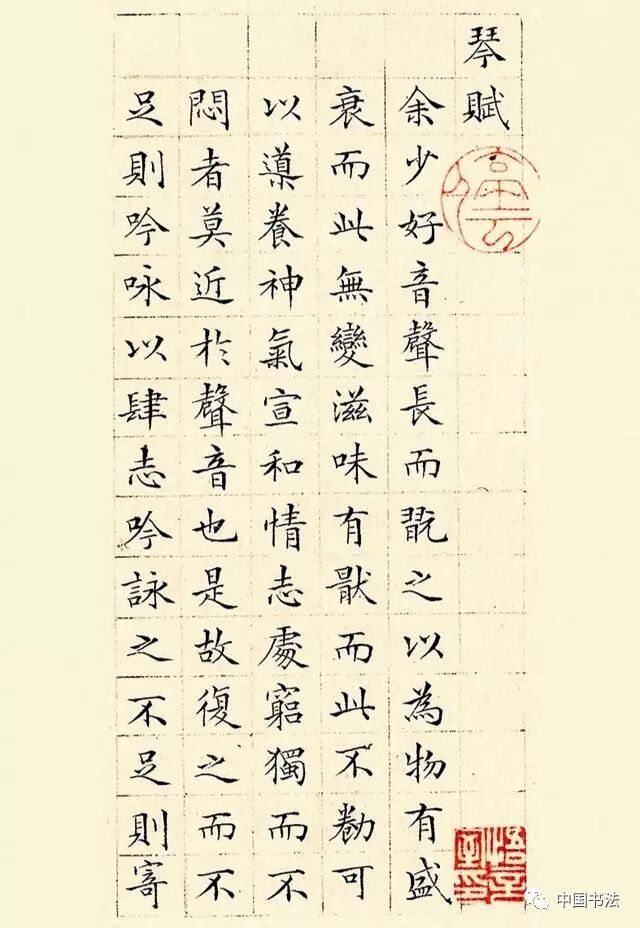 琴賦
余少好音聲長而翫之以為物有盛
衰而此無變滋味有猒而此不勌可
以導養神氣宣和情志處窮獨而不
悶者莫近於聲音也是故復之而不
足則吟咏以肆志吟詠之不足則寄
中国书法